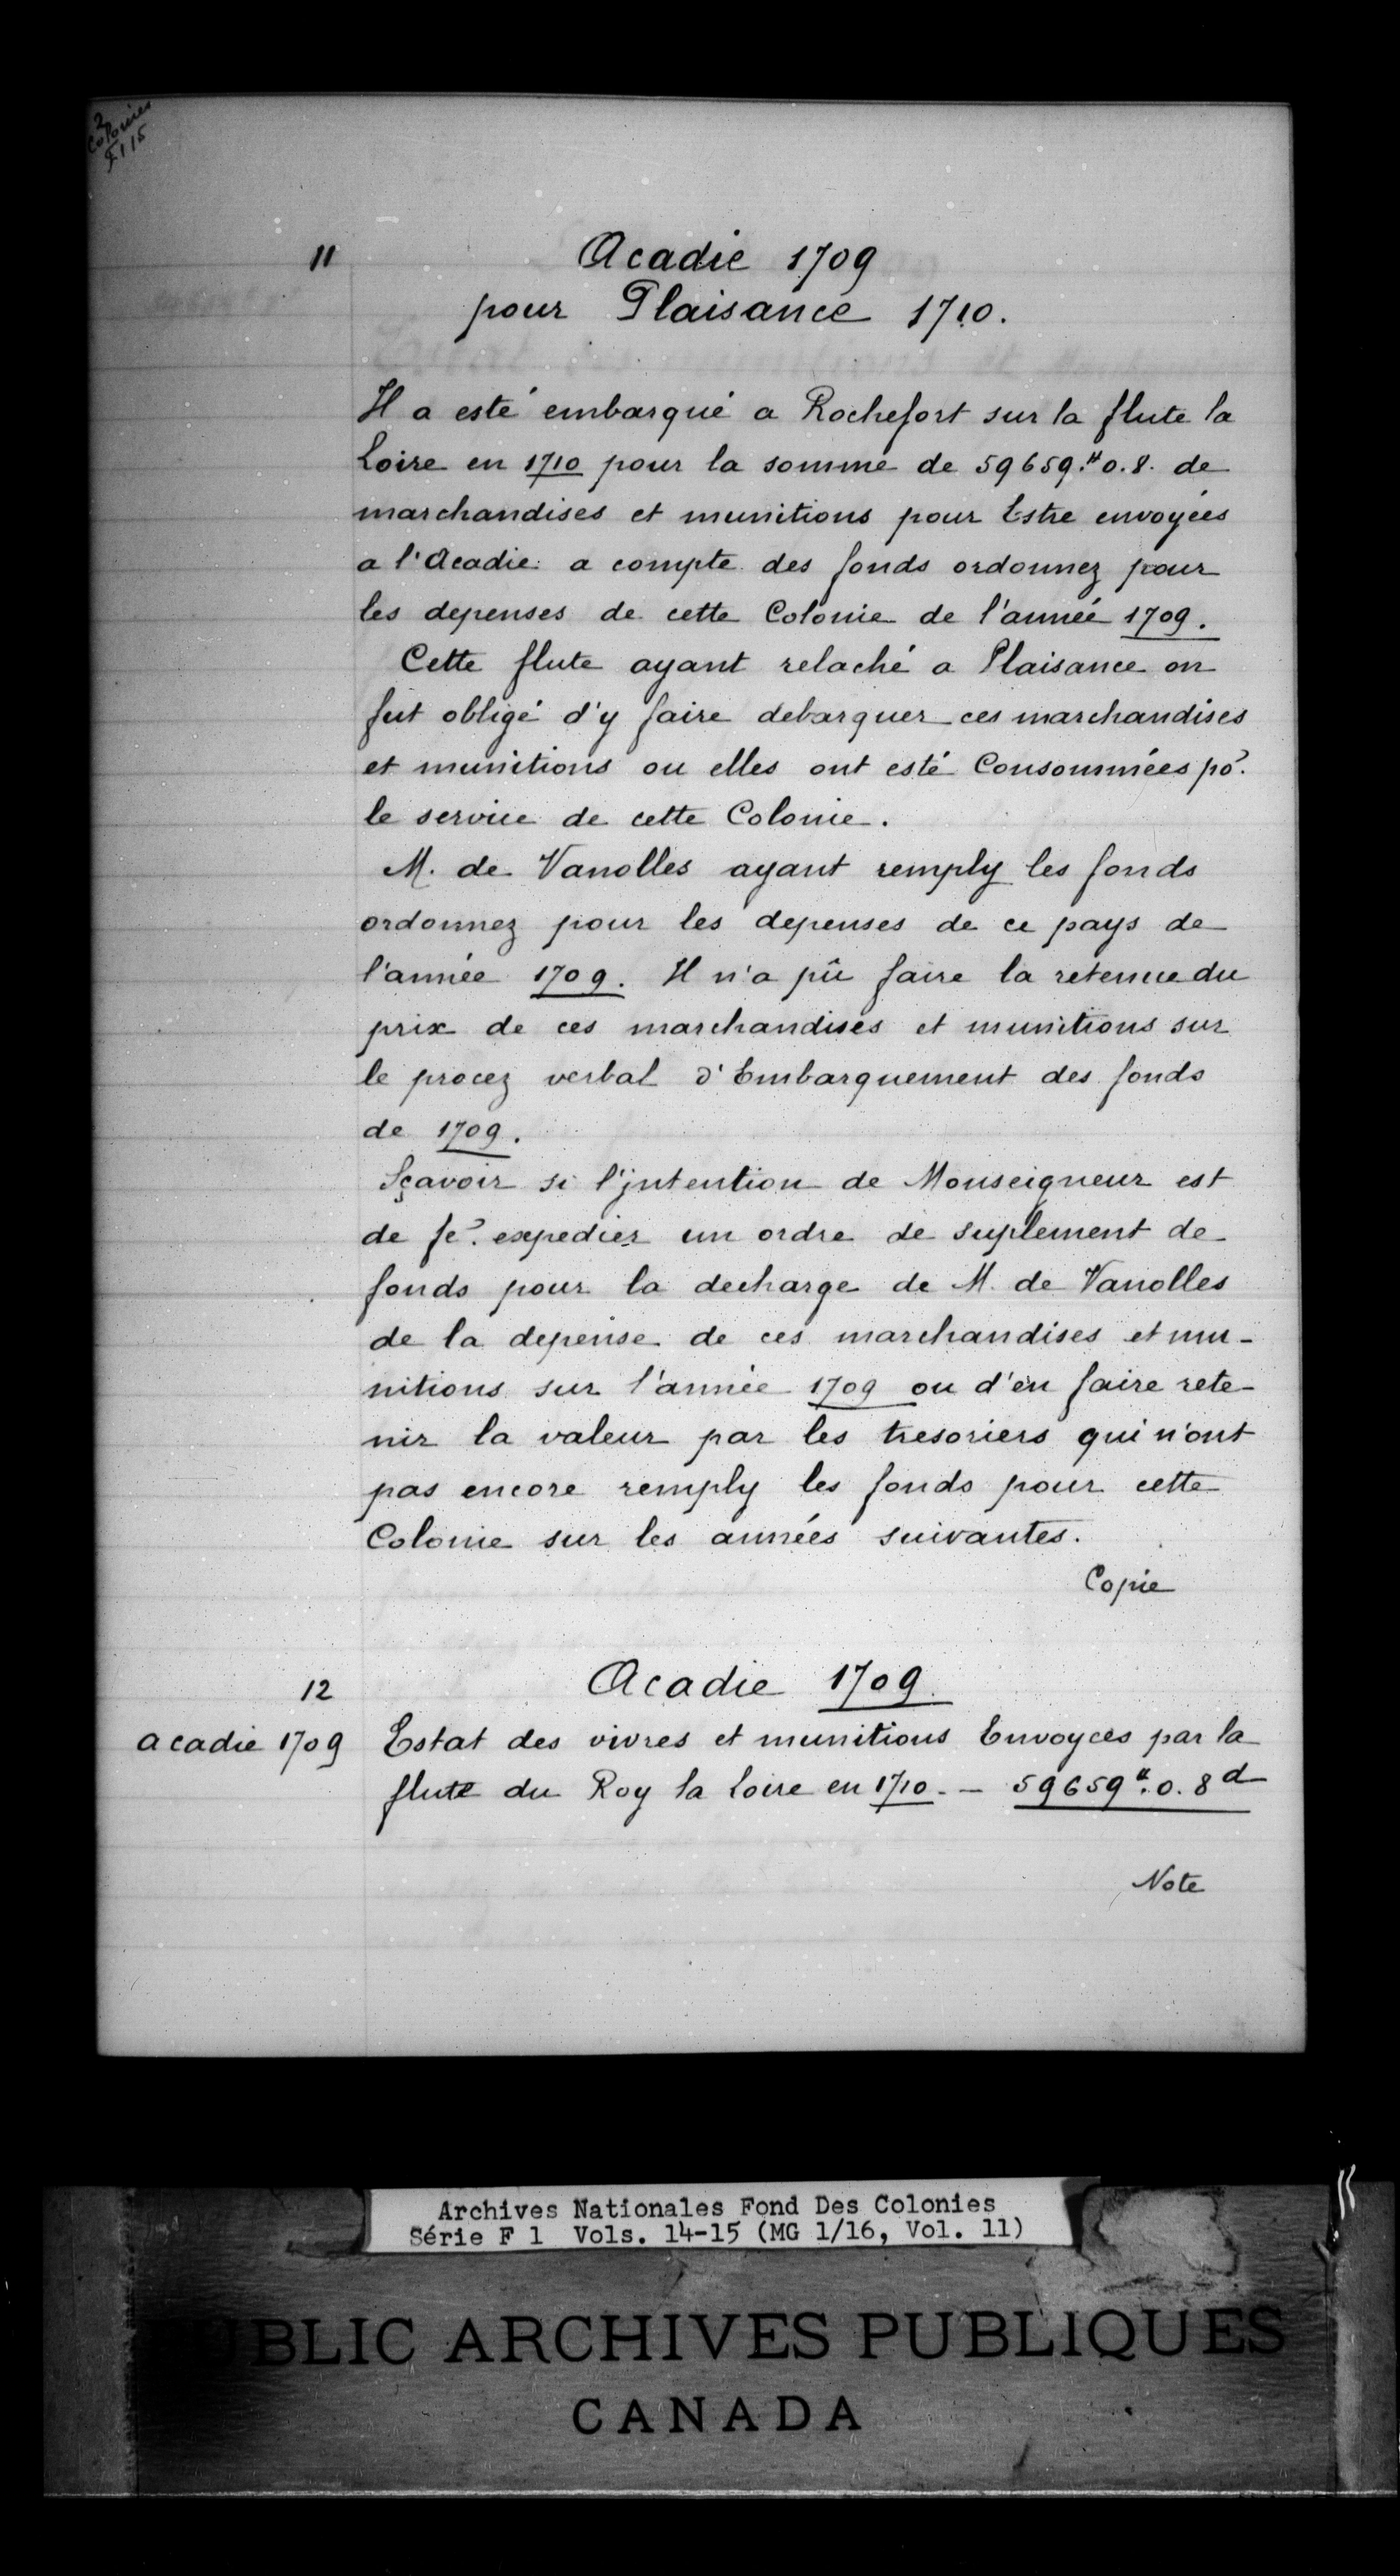 2
Colonies
F 1 15
11
Acadie 1709
pour Plaisance 1710.
Il a esté embarqué a Rochefort sur la flute la
Loire en 1710 pour la somme de 59659.# 0.8. de
marchandises et munitions pour Estre envoyées
a l'Acadie a compte des fonds ordonnez pour
les depenses de cette Colonie de l'année 1709.
Cette flute ayant relaché a Plaisance on
fut obligé d'y faire debarquer ces marchandises
et munitions ou elles ont esté Consommées po.r
le service de cette Colonie.
M. de Vanolles ayant remply les fonds
ordonnez pour les depenses de ce pays de
l'année 1709. Il n'a pû faire la retenue du
prix de ces marchandises et munitions sur
le procez verbal d'Embarquement des fonds
de 1709.
Sçavoir si l'jntention de Monseigneur est
de fe.r expedier un ordre de suplement de
fonds pour la decharge de M. de Vanolles
de la depense de ces marchandises et mu-
nitions sur l'année 1709 ou d'en faire rete-
nir la valeur par les tresoriers qui n'ont
pas encore remply les fonds pour cette
Colonie sur les années suivantes.
Copie
12
Acadie 1709.
acadie 1709
Estat des vivres et munitions Envoyees par la
flute du Roy la loire en 1710. — 59659#. 0. 8d
Note
Archives Nationales Fond Des Colonies
Série F 1 Vols. 14-15 (MG 1/16, Vol. 11)
PUBLIC ARCHIVES PUBLIQUES
CANADA